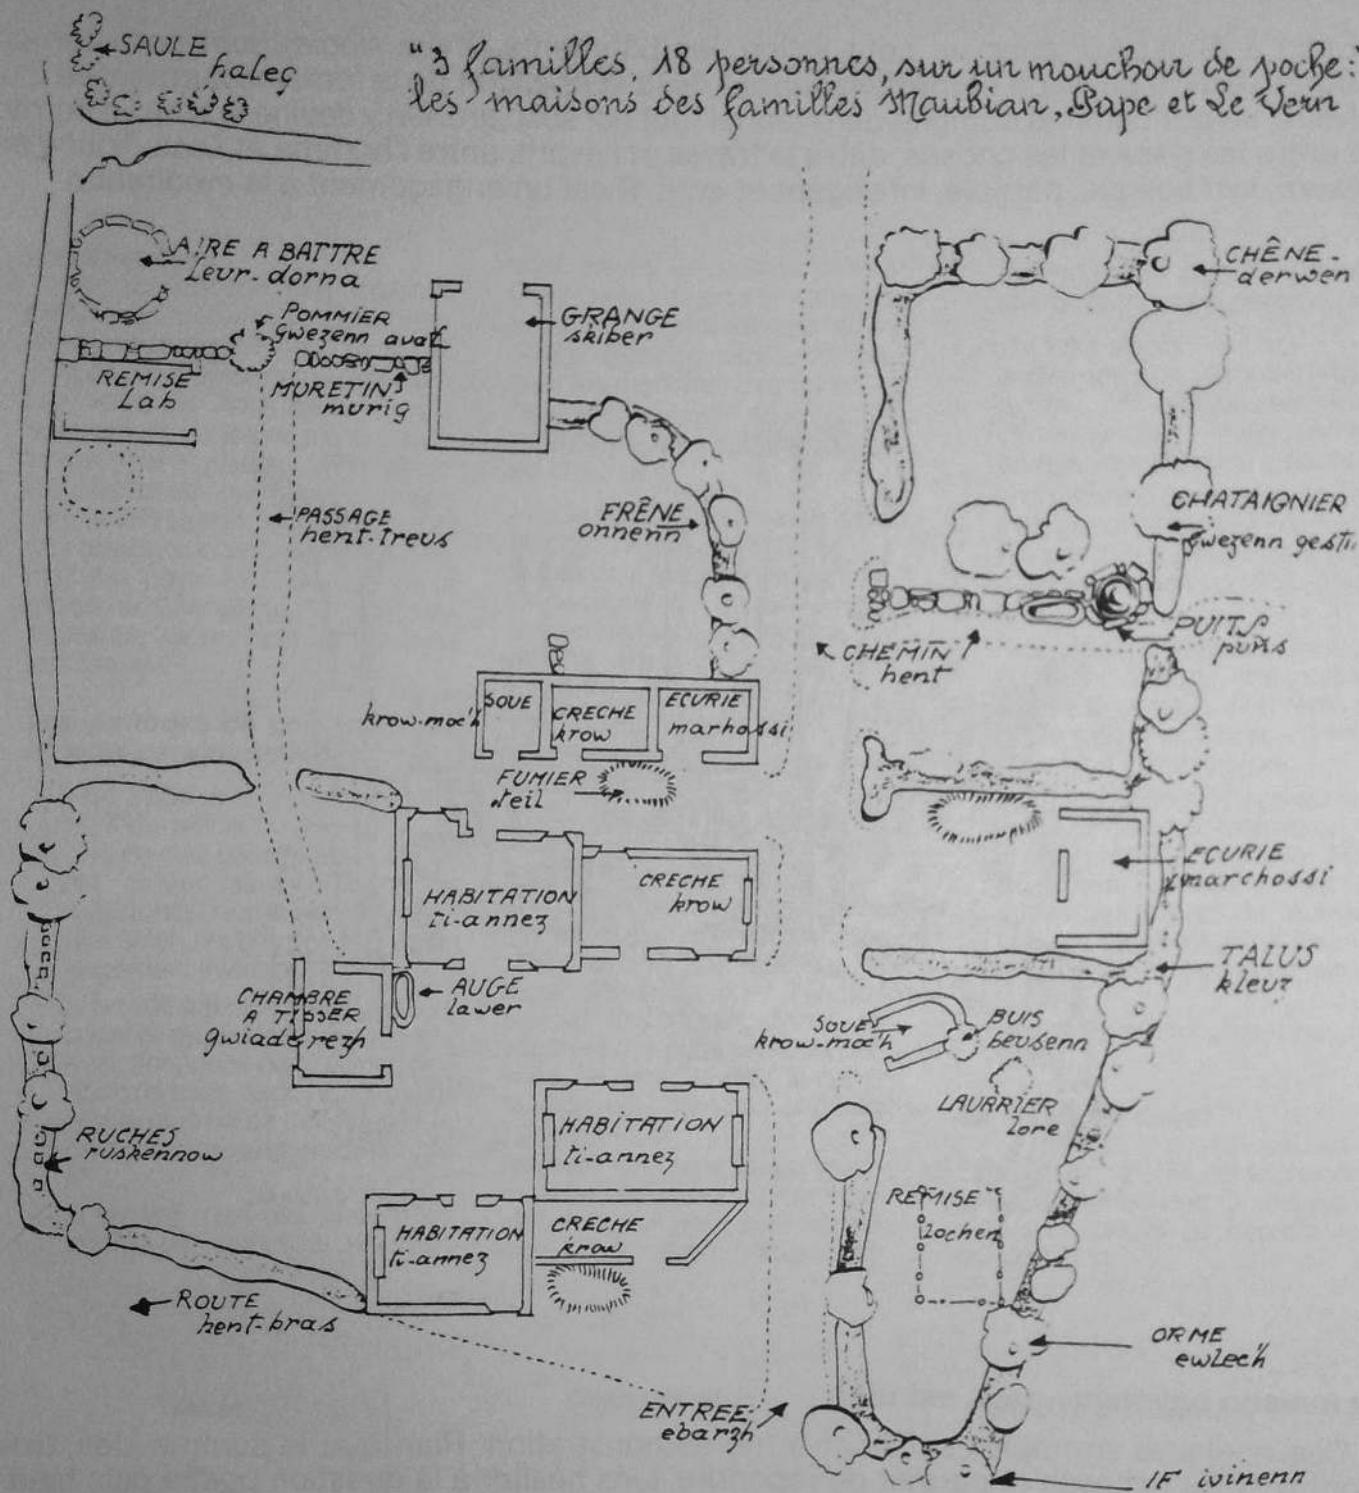 "3 familles, 18 personnes, sur un mouchoir de poche:
les maisons des familles Maubian, Pape et Le Vern
SAULE
haleg
AIRE A BATTRE
Leur-dorna
POMMIER
gwezenn aval
GRANGE
skiber
CHÊNE-
derwen
REMISE
Lab
MURETIN
murig
PASSAGE
hent-treus
FRÊNE
onnenn
CHATAIGNIER
gwezenn gestin
PUITS
puñs
CHEMIN
hent
SOUE
krow-moc'h
CRECHE
krow
ECURIE
marhossi
FUMIER
teil
HABITATION
ti-annez
CRECHE
krow
ECURIE
marchossi
TALUS
kleuz
CHAMBRE
A TISSER
gwiaderezh
AUGE
lawer
SOUE
krow-moc'h
BUIS
beusenn
LAURRIER
lore
RUCHES
ruskennow
HABITATION
ti-annez
REMISE
lochen
HABITATION
ti-annez
CRECHE
krow
ROUTE
hent-bras
ORME
ewlec'h
ENTREE
ebarzh
IF ivinenn